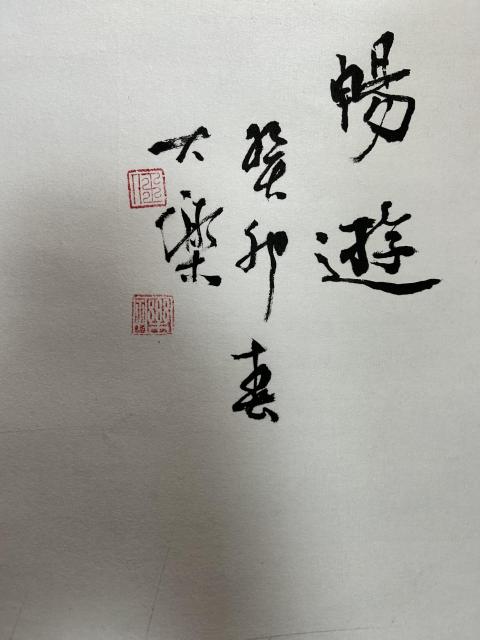 暢遊
癸卯春
大樂